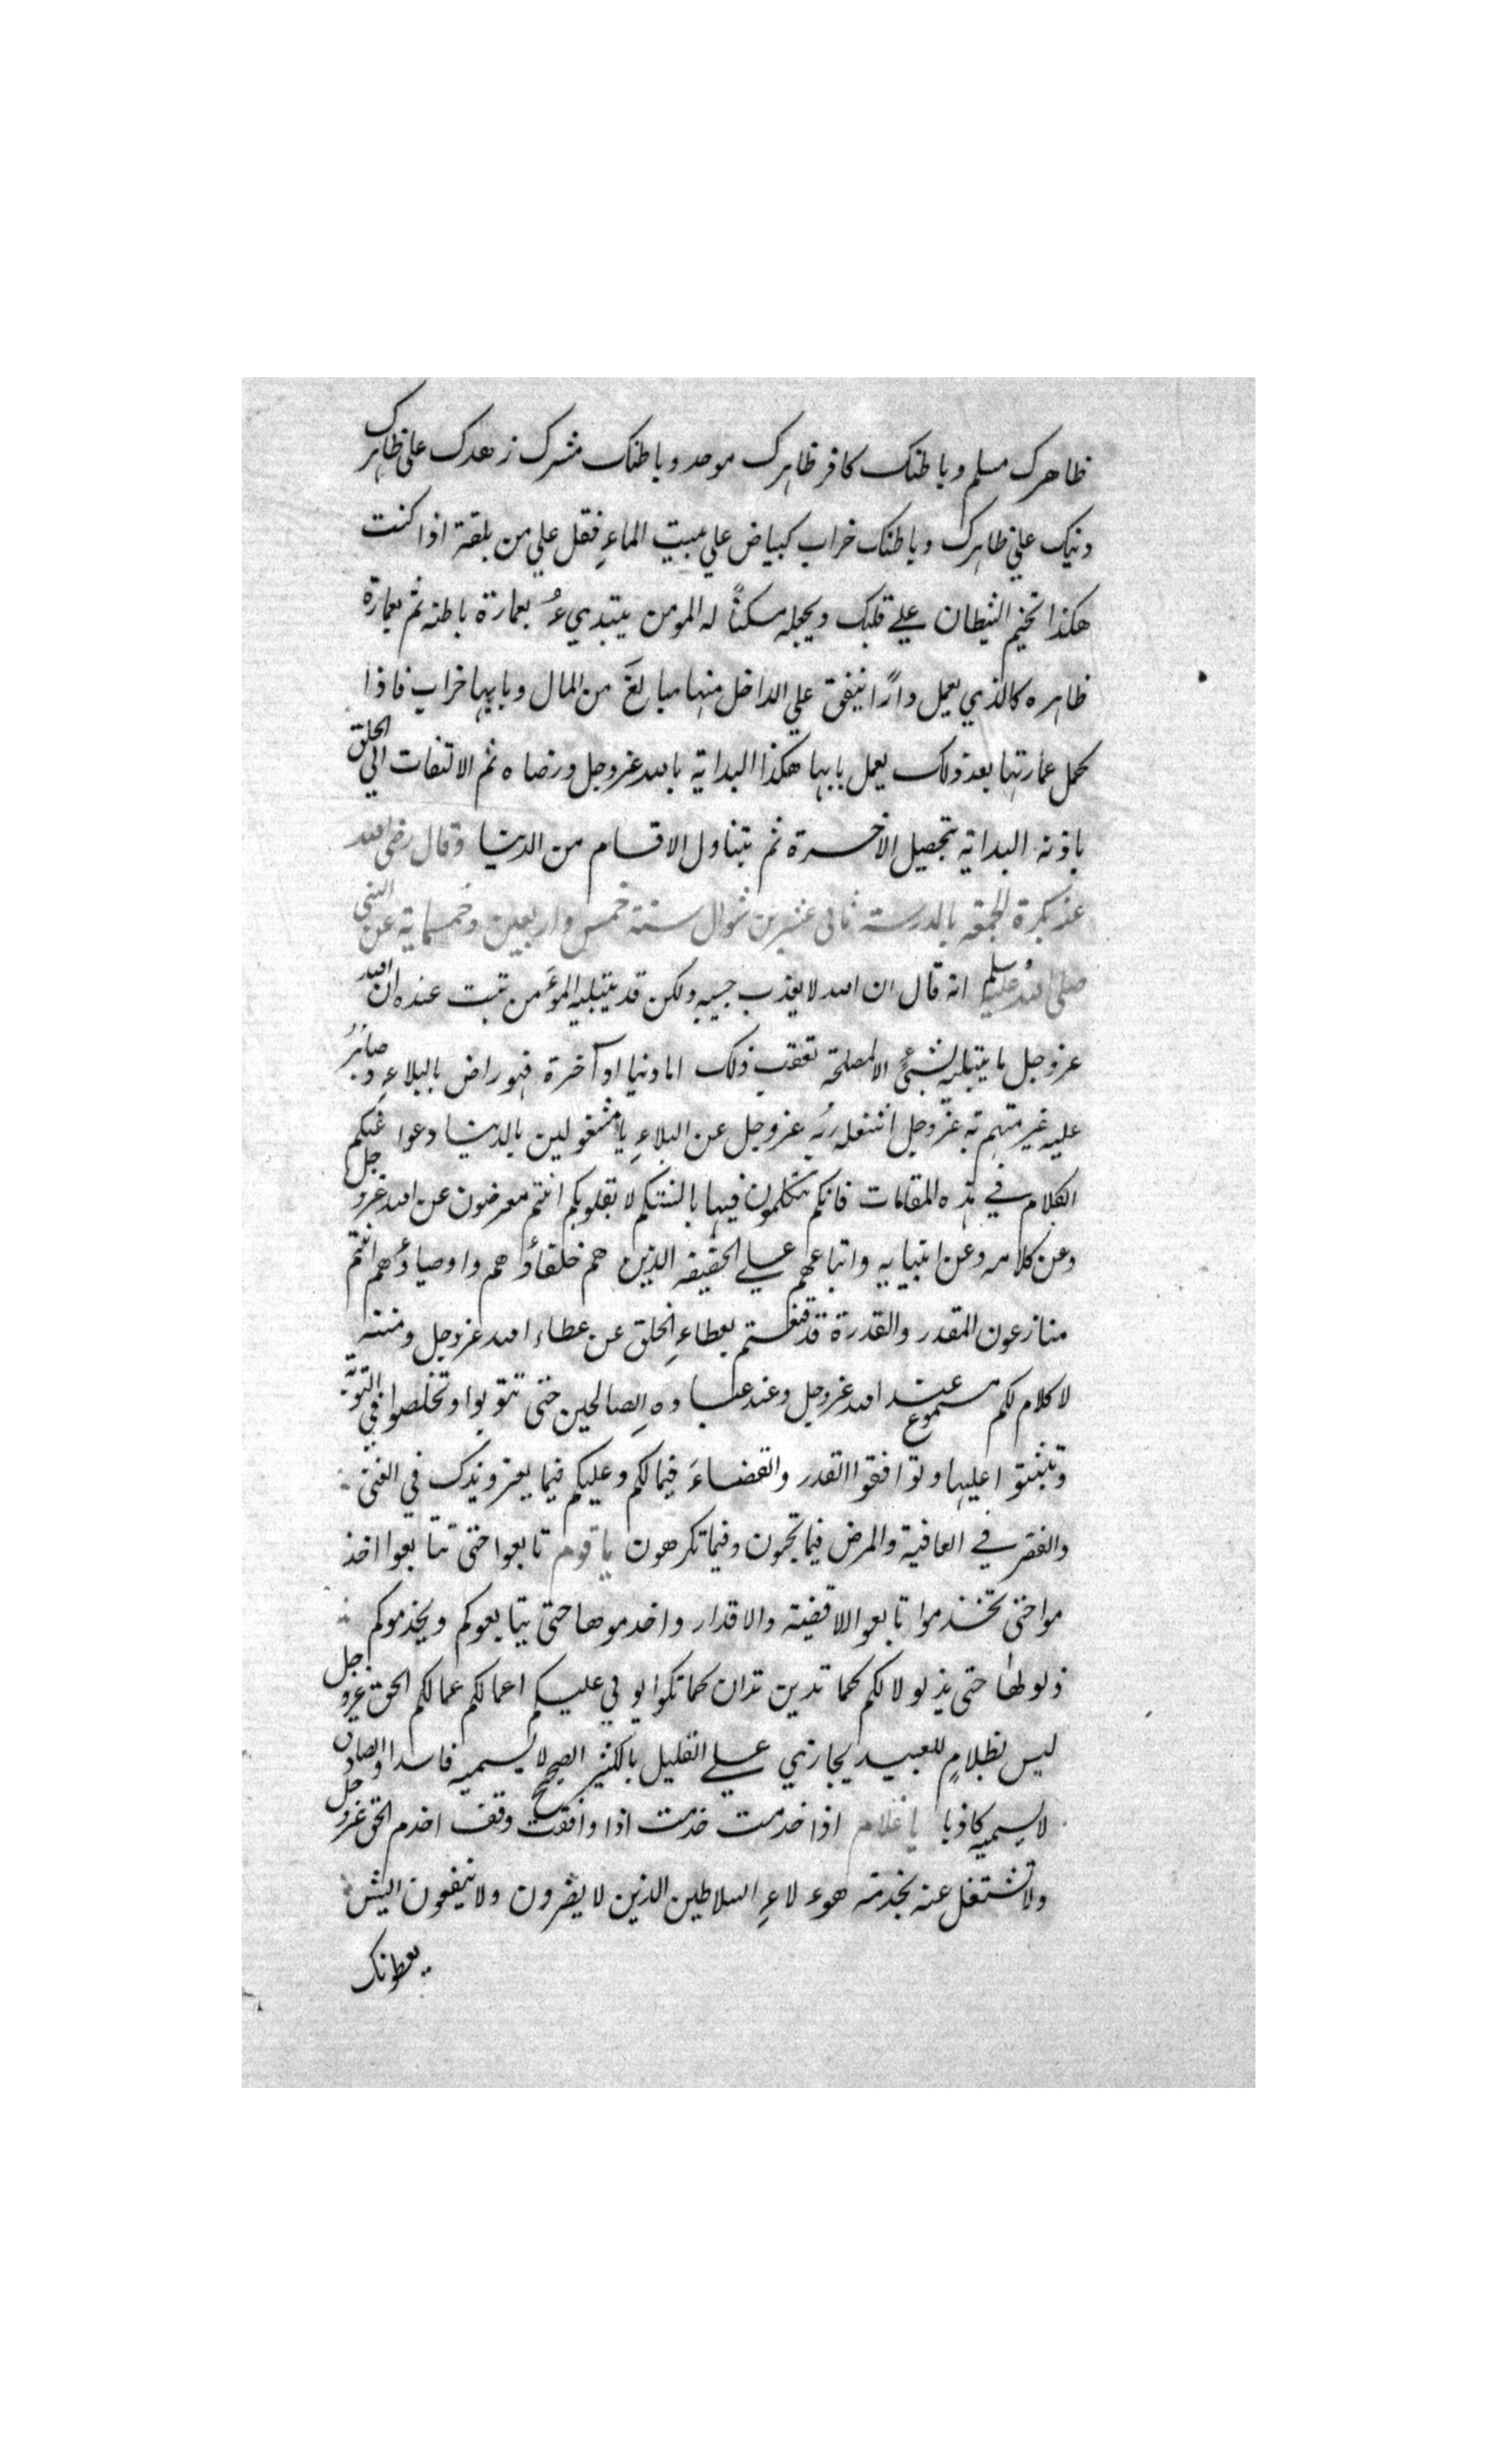 ظاهرك مسلم وباطنك كافر ظاهرك موحد وباطنك مشرك زهدك على ظاهرك
دنيك علي ظاهرك وباطنك خراب كبياض علي بيت الماءِ فقل علي من بلقة اذا كنت
هكذا تخيم الشيطان علي قلبك ويجعله مسكنًا له المومن يبتديء بعمارة باطنه ثم بعمارة
ظاهره كالذي يعمل دارًا ينفق علي الداخل منها مبالغَ من المال وبابها خراب فاذا
كمل عمارتها بعد ذلك يعمل بابها هكذا البداية بالله عزوجل ورضاه ثم الالتفات الي الخلق
باذنه البداية بتحصيل الاخرة ثم بتناول الاقسام من الدنيا وقال رضي الله
عنه بكرة الجمعه بالمدرسة ثاني عشرين شوال سنة خمس واربعين وخمسماية عن النبي
صلى الله عليه وسلم انه قال ان الله لا يعذب حبيبه ولكن قد يبتليه المؤمن ثبت عنده ان الله
عزوجل ما يبتليه لشيءٍ الا لمصلحة تعقب ذلك اما دنيا او آخرة فهو راض بالبلاءِ وصابرُ
عليه غير متهم ربه عزوجل اشتغله ربُه عزوجل عن البلاءِ يا مشغولين بالدنيا دعوا عنكم
الكلام في هذه المقامات فانكم تتكلمون فيها بالسنتكم لا بقلوبكم انتم معرضون عن الله عزوجل
وعن كلامه وعن انبيايه واتباعهم علي الحقيقه الذين هم خلفاؤهم واوصياؤهم انتم
منازعون المقدر والقدرة قد قنعتم بعطاءِ الخلق عن عطاء الله عزوجل ومننه
لا كلام لكم مسموع عند الله عزوجل وعند عباده الصالحين حتى تتوبوا وتخلصوا في التوبة
وتثبتوا عليها وتوافقوا القدر والقضاءَ فيما لكم وعليكم فيما يعز ويذل في الغنى
والفقر في العافية والمرض فيما تحبون وفيما تكرهون يا قوم تابعوا حتى تتابعوا اخد
موا حتى تخدموا تابعوا الاقضية والاقدار واخدموها حتى يتابعوكم ويخدموكم
ذلوا لها حتى يذلوا لكم كما تدين تدان كما تكونوا يولي عليكم اعمالكم عمالكم الحق عزوجل
ليس بظلامٍ للعبيد يجازي علي القليل بالكثير الصحيح لا يسميه فاسدا والصادق
لا يسميه كاذبا يا غلام اذا خدمت خدمت اذا وافقت وقف اخدم الحق عزوجل
ولا تشتغل عنه بخدمة هوءلاءِ السلاطين الذين لا يضرون ولا ينفعون اليش
يعطونك